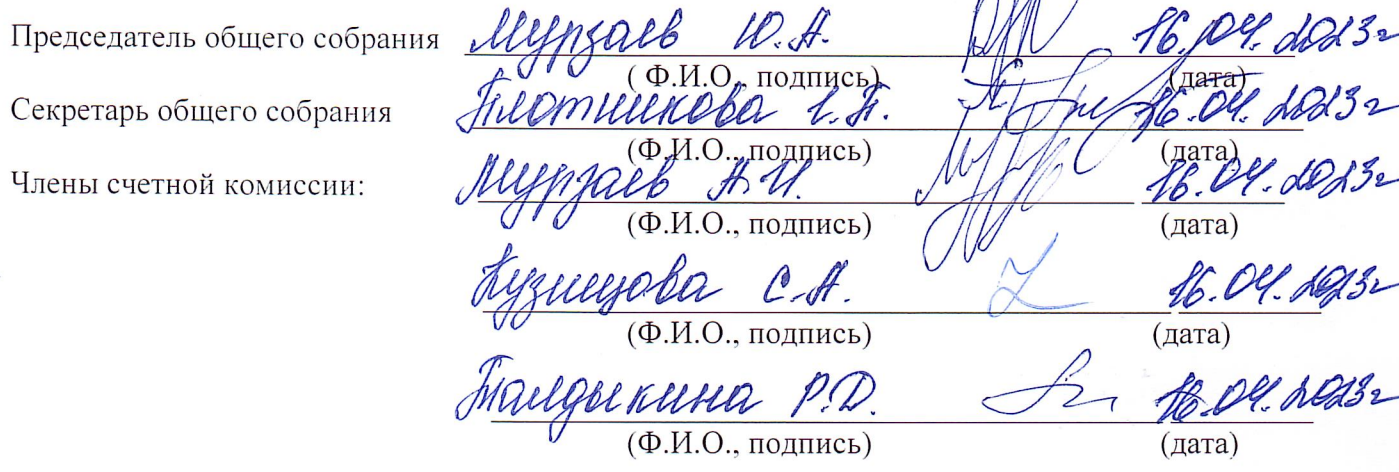 Председатель общего собрания Мурзаев Ю.А. 16.04.2023г
( Ф.И.О., подпись) (дата)
Секретарь общего собрания Плотникова Г.П. 16.04.2023г
(Ф.И.О., подпись) (дата)
Члены счетной комиссии: Мурзаев А.И. 16.04.2023г
(Ф.И.О., подпись) (дата)
Кузнецова С.А. 16.04.2023г
(Ф.И.О., подпись) (дата)
Талдыкина Р.Д. 16.04.2023г
(Ф.И.О., подпись) (дата)